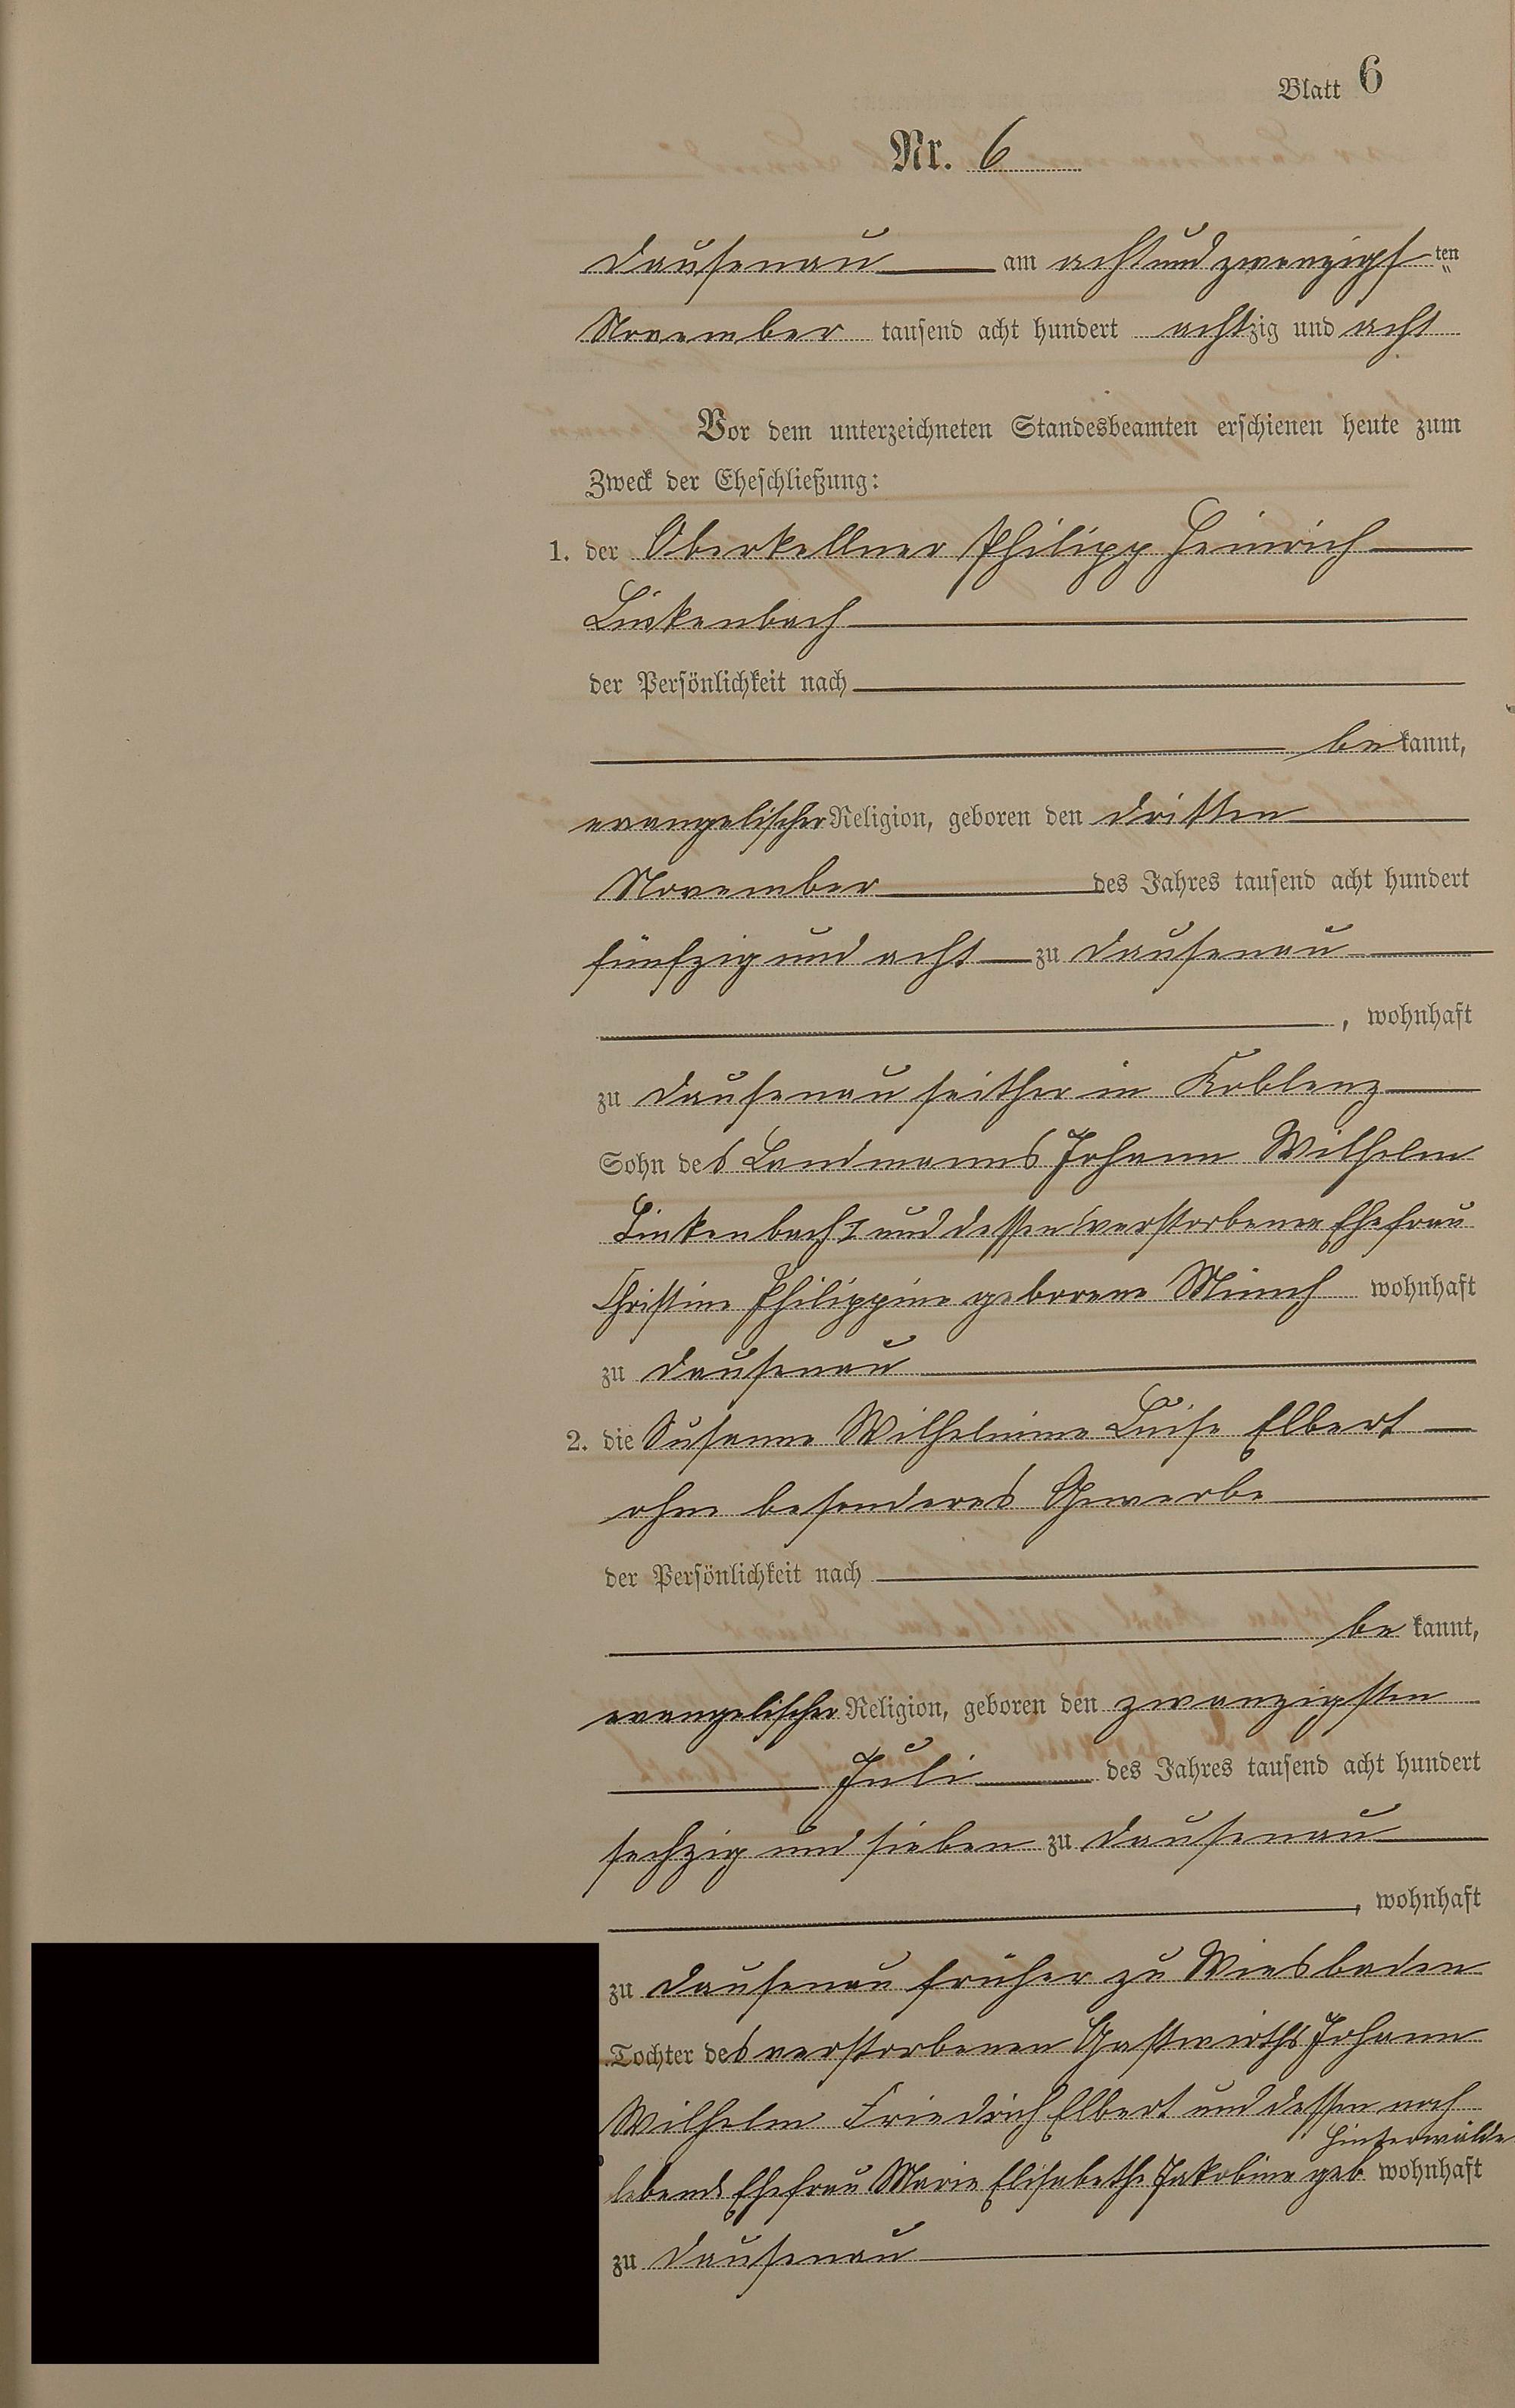 Blatt 6
Nr. 6
Dausenau am achtundzwanzigs ten
November tausend acht hundert achtzig und acht
Vor dem unterzeichneten Standesbeamten erschienen heute zum
Zweck der Eheschließung:
1. der Oberkellner Philipp Heinrich
Linkenbach
der Persönlichkeit nach
be kannt,
evangelischer Religion, geboren den dritten
November des Jahres tausend acht hundert
fünfzig und acht zu Dausenau
, wohnhaft
zu Dausenau seither in Koblenz
Sohn des Landmanns Johann Wilhelm
Linkenbach I und dessen verstorbenen Ehefrau
Christine Philippine geborene Münch wohnhaft
zu Dausenau
2. die Susanne Wilhelmine Luise Elbert
ohne besonderes Gewerbe
der Persönlichkeit nach
be kannt,
evangelischer Religion, geboren den zwanzigsten
Juli des Jahres tausend acht hundert
sechzig und sieben zu Dausenau
, wohnhaft
zu Dausenau früher zu Wiesbaden
Tochter des verstorbenen Gastwirths Johann
Wilhelm Friedrich Elbert und dessen noch
Hinterwälde
lebende Ehefrau Marie Elisabethe Jakobine geb. wohnhaft
zu Dausenau